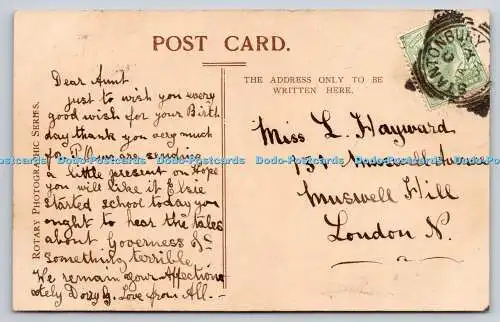 POST CARD.
STANTONBURY
Dear Aunt
just to wish you every
good wish for your Birth
day thank you very much
for P.O we are sending
a little present on Hope
you will like it Elsie
started school today you
ought to hear the tales
about Governess &c
something terrible
We remain your Affection
ately Love from All.-
ROTARY PHOTOGRAPHIC SERIES.
THE ADDRESS ONLY TO BE
WRITTEN HERE.
Miss L. Hayward
Muswell Avenue
Muswell Hill
London N.
Dodo-Postcards Dodo-Postcards Dodo-Postcards Dodo-Postcards Dodo-Postcards